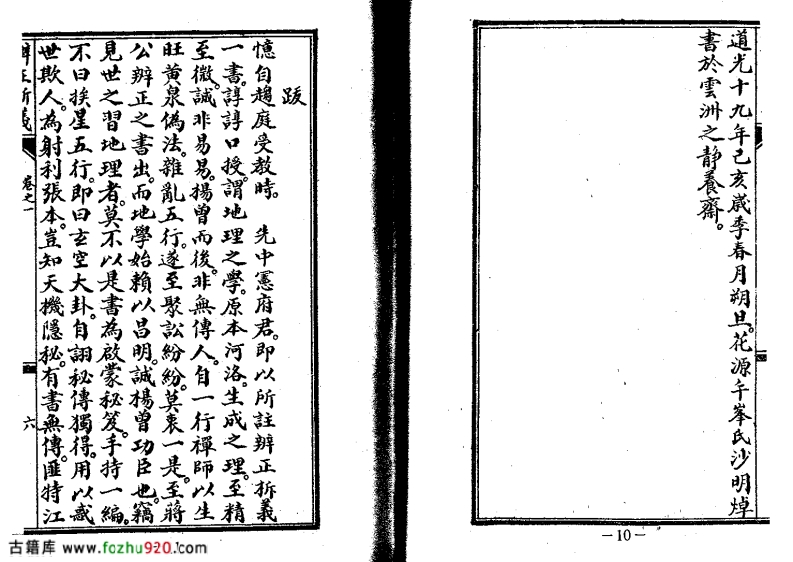 道光十九年己亥歲季春月朔旦。花源千峯氏沙明焯
書於雲洲之静養齋。
—10—
跋
憶自趨庭受教時。先中憲府君。即以所註辨正析義
一書。諄諄口授。謂地理之學。原本河洛。生成之理。至精
至微。誠非易易。楊曾而後。非無傳人。自一行禪師以生
旺黄泉偽法。雜亂五行。遂至聚訟紛紛。莫衷一是。至蔣
公辨正之書出。而地學始賴以昌明。誠楊曾功臣也。竊
見世之習地理者。莫不以是書為啟蒙秘笈。手持一編。
不曰挨星五行。即曰玄空大卦。自詡秘傳獨得。用以惑
世欺人。為射利張本。豈知天機隱秘。有書無傳。匪特江
辨正析義
卷之一
六
古籍库 www.fozhu920.com